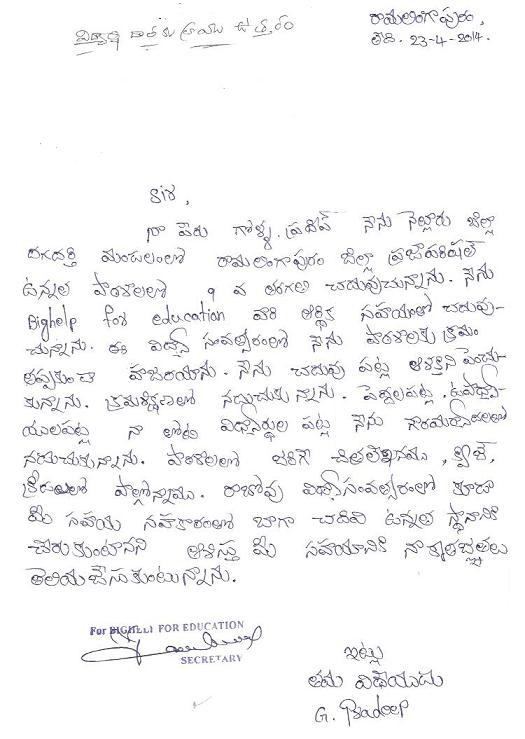 విద్యార్థి దాతకు వ్రాయు ఉత్తరం
రామలింగాపురం,
తేది. 23-4-2014.
Sir,
నా పేరు గొళ్ళ. ప్రదీప్ నేను నెల్లూరు జిల్లా
దగదర్తి మండలంలో రామలింగాపురం జిల్లా ప్రజాపరిషత్
ఉన్నత పాఠశాలలో 9 వ తరగతి చదువుచున్నాను. నేను
Bighelp for education వారి ఆర్థిక సహాయంతో చదువు-
చున్నాను. ఈ విద్యా సంవత్సరంలో నేను పాఠశాలకు క్రమం
తప్పకుండా హాజరయ్యాను. నేను చదువు పట్ల ఆసక్తిని పెంచు-
కున్నాను. క్రమశిక్షణలో నడుచుకున్నాను. పెద్దలపట్ల, ఉపాధ్యా
యులపట్ల నా తోటి విద్యార్థుల పట్ల నేను గౌరవమర్యాదలతో
నడుచుకున్నాను. పాఠశాలలో జరిగే చిత్రలేఖనము, క్విజ్,
క్రీడలలో పాల్గొన్నాము. రాబోవు విద్యాసంవత్సరంలో కూడా
మీ సహాయ సహకారంలో బాగా చదివి ఉన్నత స్థానానికి
చేరుకుంటానని ఆశిస్తు మీ సహాయానికి నా కృతజ్ఞతలు
తెలియచేసుకుంటున్నాను.
For BIGHELP FOR EDUCATION
SECRETARY
ఇట్లు
తమ విధేయుడు
G. Pradeep